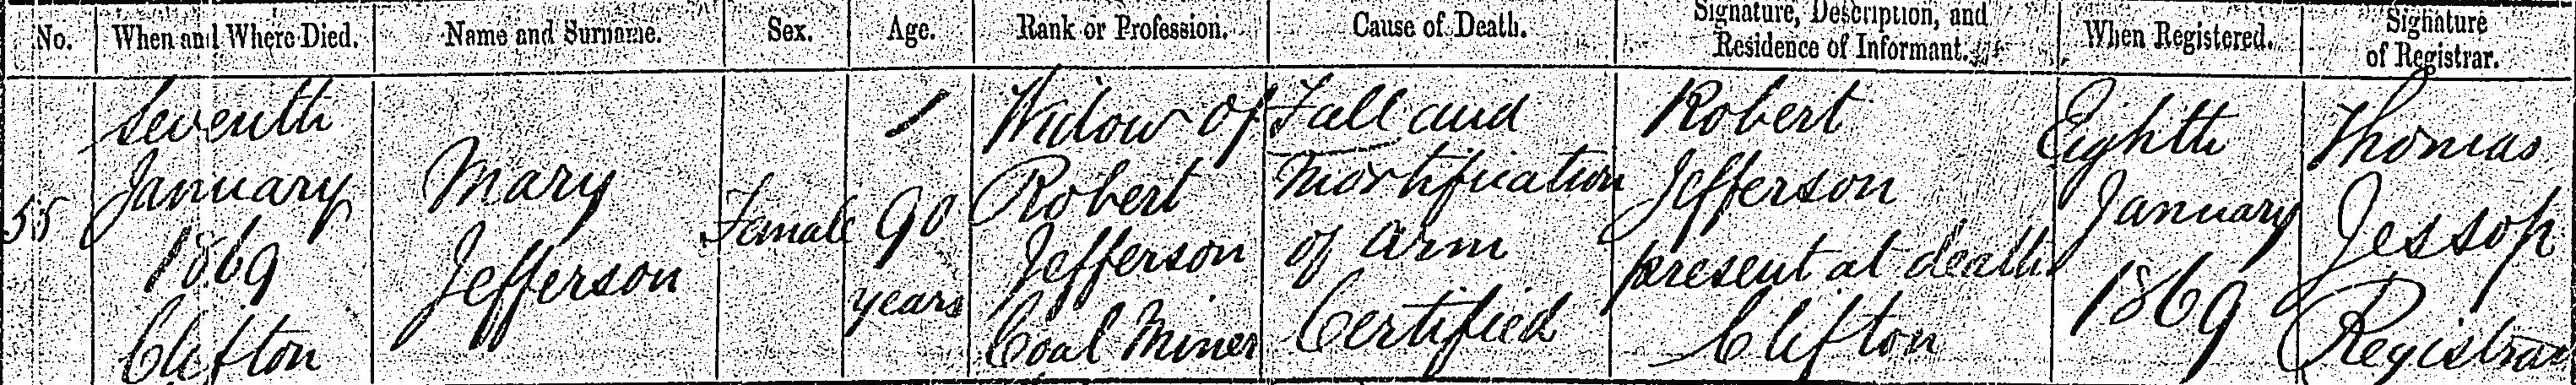 No. When and Where Died. Name and Surname. Sex. Age. Rank or Profession. Cause of Death. Signature, Description, and Residence of Informant. When Registered. Signature of Registrar.
55
Seventh
January
1869
Clifton
Mary
Jefferson
Female
90
years
Widow of
Robert
Jefferson
Coal Miner
Fall and
Mortification
of arm
Certified
Robert
Jefferson
present at death
Clifton
Eighth
January
1869
Thomas
Jessop
Registrar